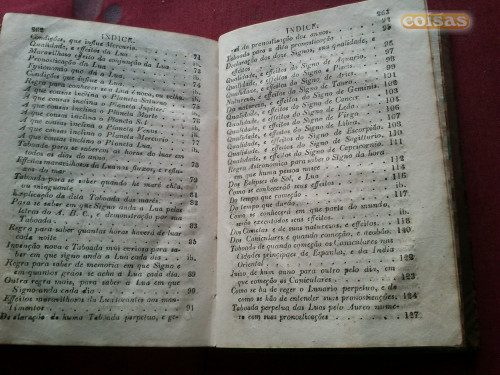 coisas
262 INDICE.
Condições, que influe Mercurio. 71
Qualidade, e effeitos da Lua.
Maravilhoso effeito da conjunção da Lua
Pronosticação da Lua
Fysionomia que dá a Lua. 74
Condições que influe a Lua. 74
Regra para conhecer se a Lua he nova, ou velha.
A que cousas inclina o Planeta Saturno
A que cousas inclina o Planeta Jupiter.
A que cousas inclina o Planeta Marte
A que cousas inclina o Sol
A que cousas inclina o Planeta Venus
A que cousas inclina o Planeta Mercurio
A que cousas inclina a Lua
Taboada para se saberem as horas da lua em
todos os dias do anno. 78
Effeitos maravilhosos da Lua nos fluxos, e reflu-
xos do mar 79
Para se saber quando he maré chêa,
ou minguante
Explicação da dita Taboada das marés. 82
Para se saber em que Signo anda a Lua pelas
letras do A. B. C., e demonstração por sua
Taboada. 83
Regra para saber quantas horas haverá de luar
cada noite 85
Invenção nova e Taboada mui curiosa para sa-
ber em que signo anda a Lua cada dia. ib.
Regra para saber de memoria em que Signo e
em quantos gráos se acha a Lua cada dia. 89
Outra regra mais, para se saber a Lua em que
Signo anda cada dia! 90
Effeitos maravilhosos da Lua tocantes aos man-
timentos 91
Declaração de huma Taboada perpetua, e ge-
INDICE. 263
ral da pronosticação dos annos. 92
Taboada para a dita pronosticação 95
Declaração dos doze Signos, sua qualidade, e
effeitos.
Qualidade, e effeitos do Signo de Aquario.
Qualidade, e effeitos do Signo de Piscis.
Qualidade, e effeitos do Signo de Aries. 100
Natureza, e effeitos do Signo de Tauro.
Da natureza, e effeitos do Signo de Geminis.
Qualidade, e effeitos do Signo de Cancer
Qualidade, e effeitos do Signo de Leão.
Qualidade, e effeitos do Signo de Virgo.
Qualidade, e effeitos do Signo de Libra.
Qualidade, e effeitos do Signo de Escorpião.
Qualidade, e effeitos do Signo de Sagittario.
Qualidade, e effeitos do Signo de Capricornio. 111
Regra Astronomica para saber o Signo da hora
em que huma pessoa nasce 112
Dos Eclipses do Sol, e Lua 115
Como se conhecerão seus effeitos. ib.
Do tempo que começão
Do tempo que durão
Como se conhecerá em que parte do mundo,
serão executados seus effeitos.
Dos Cometas e de suas naturezas, e effeitos. 117
Dos Caniculares e quando começão, e acabão. 118
Taboada de quando começão os Caniculares nas
Cidades principaes de Espanha, e da India
Oriental
Juizo de hum anno para outro pelo dia, em
que começão os Caniculares 122
Como se ha de reger o Lunario perpetuo, e de
como se hão de entender suas pronosticações. 124
Taboada perpetua das Luas pelo Aureo nume-
ro com suas pronosticações 127